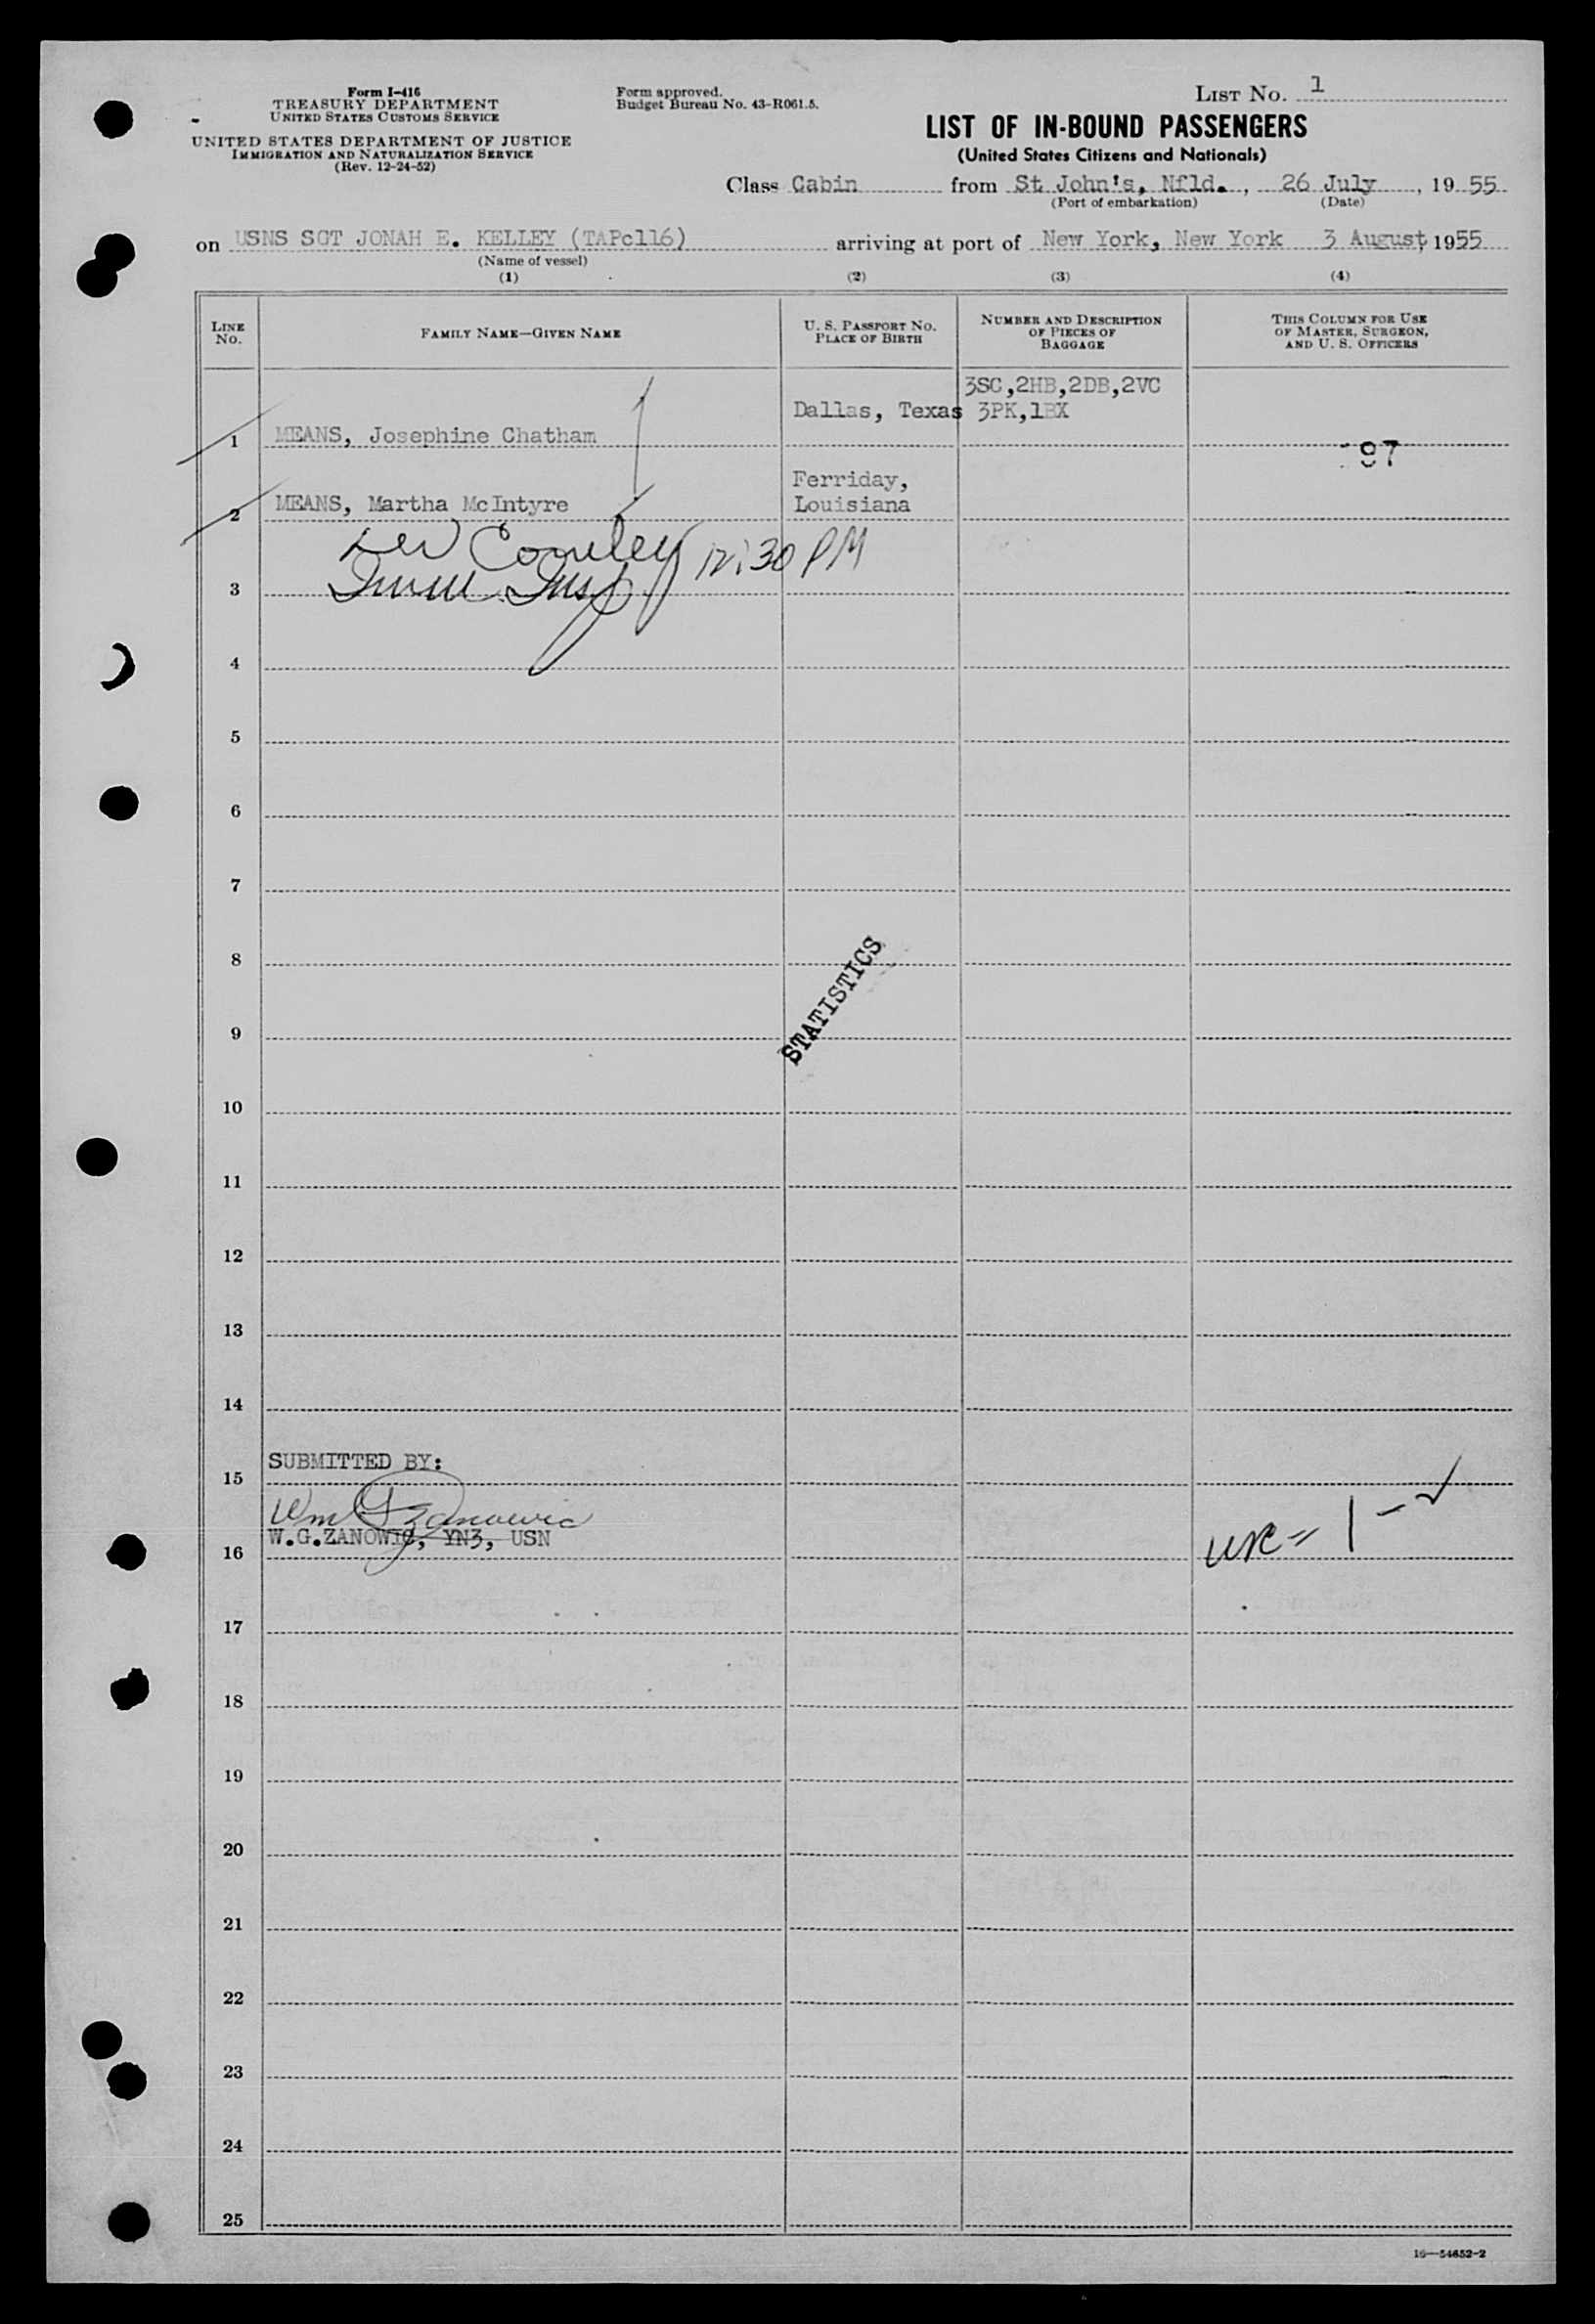 Form I-416
TREASURY DEPARTMENT
UNITED STATES CUSTOMS SERVICE
UNITED STATES DEPARTMENT OF JUSTICE
IMMIGRATION AND NATURALIZATION SERVICE
(Rev. 12-24-52)
Form approved.
Budget Bureau No. 43-R061.5.
LIST No. 1
LIST OF IN-BOUND PASSENGERS
(United States Citizens and Nationals)
Class Cabin from St John's, Nfld., 26 July, 1955
(Port of embarkation) (Date)
on USNS SGT JONAH E. KELLEY (TAPc116) arriving at port of New York, New York 3 August, 1955
(Name of vessel)
(1) (2) (3) (4)
LINE No.
FAMILY NAME—GIVEN NAME
U. S. PASSPORT No.
PLACE OF BIRTH
NUMBER AND DESCRIPTION
OF PIECES OF
BAGGAGE
THIS COLUMN FOR USE
OF MASTER, SURGEON,
AND U. S. OFFICERS
3SC,2HB,2DB,2VC
Dallas, Texas 3PK,1BX
1 MEANS, Josephine Chatham
97
Ferriday,
2 MEANS, Martha McIntyre Louisiana
12:30 PM
3 Imm. Insp.
4
5
6
7
8
STATISTICS
9
10
11
12
13
14
SUBMITTED BY:
15
Wm G Zanowic
W.G.ZANOWIC, YN3, USN
16
usc = 1 - ✓
17
18
19
20
21
22
23
24
25
16—54652-2